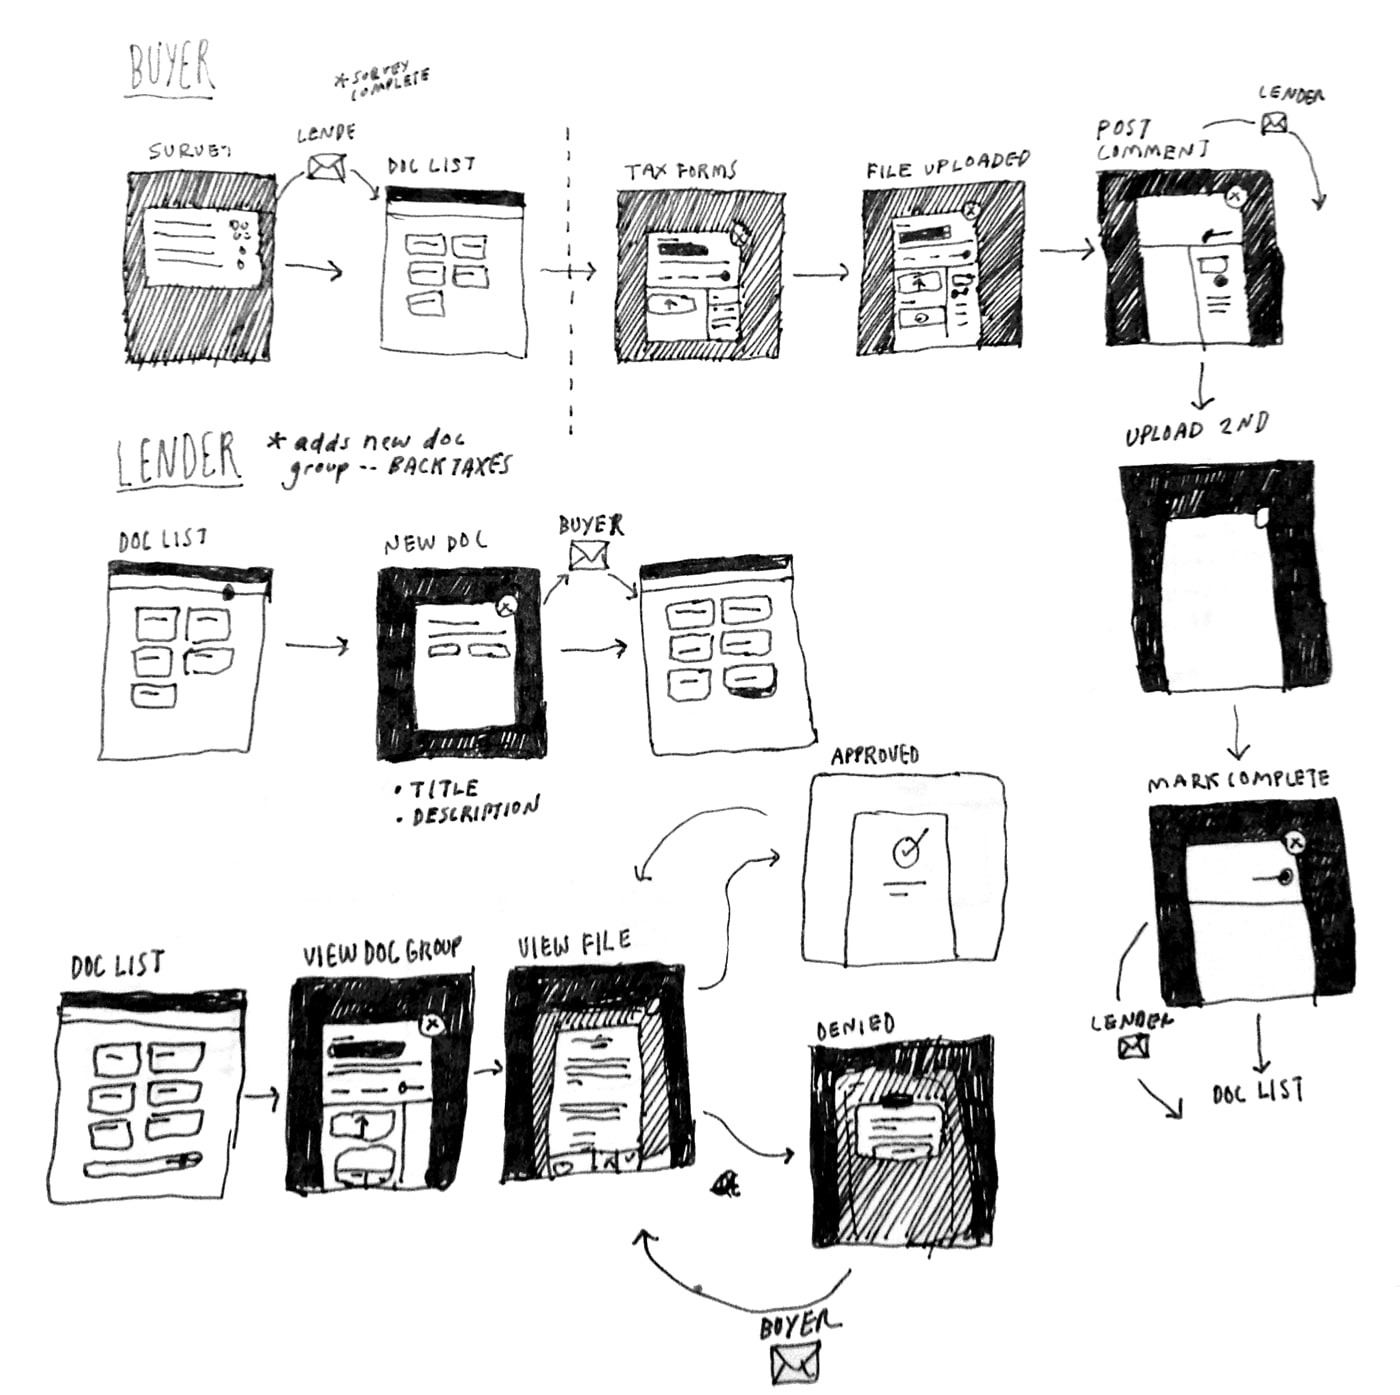 BUYER
*SURVEY
COMPLETE
LENDE
SURVEY
DOC LIST
TAX FORMS
FILE UPLOADED
POST
COMMENT
LENDER
UPLOAD 2ND
MARK COMPLETE
LENDER
DOC LIST
LENDER
* adds new doc
group -- BACK TAXES
DOC LIST
NEW DOC
BUYER
• TITLE
• DESCRIPTION
DOC LIST
VIEW DOC GROUP
VIEW FILE
APPROVED
DENIED
BUYER